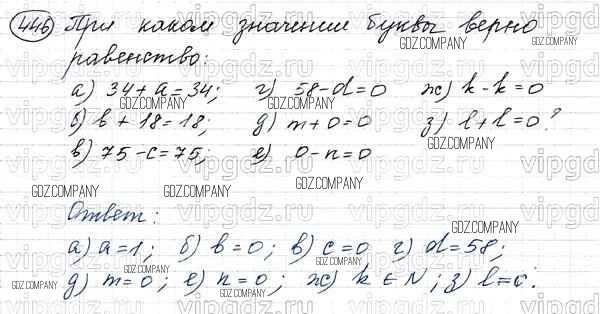 446) При каком значении буквы верно
равенство:
а) 34+a=34; г) 58-d=0 ж) k-k=0
б) b+18=18; д) m+0=0 з) l+l=0?
в) 75-c=75; е) 0-n=0
Ответ:
а) a=1; б) b=0; в) c=0 г) d=58;
д) m=0; е) n=0; ж) k ∈ N; з) l=0.